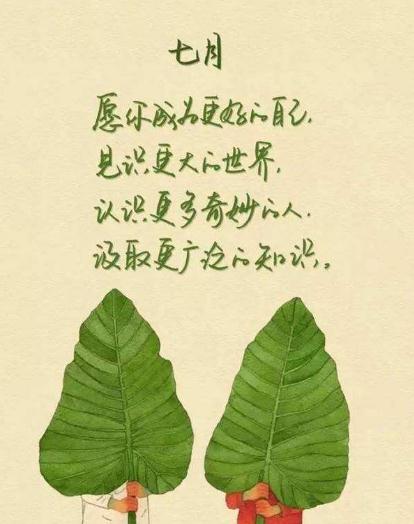 七月
愿你成为更好的自己，
见识更大的世界，
认识更多奇妙的人，
汲取更广泛的知识。